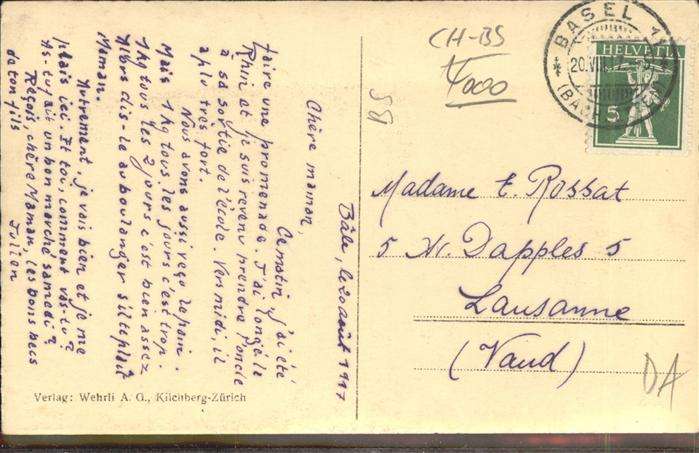 Bâle, le 20 août 1917
Chère maman,
Ce matin j'ai été
faire une promenade. J'ai longé le
Rhin et je suis revenu prendre l'oncle
à sa sortie de l'école. Vers midi, il
a plu très fort.
Nous avons aussi reçu le pain.
Mais 1 kg tous les jours c'est trop.
1 kg tous les 2 jours c'est bien assez
Alors dis-le au boulanger s'il te plaît
Maman.
Autrement je vais bien et je me
plais ici. Et toi, comment vas-tu?
As-tu fait un bon marché samedi?
Reçois, chère Maman, les bons becs
de ton fils
Julien
Verlag: Wehrli A. G., Kilchberg-Zürich
CH-BS
58
BASEL 1
20.VIII.17
HELVETIA
5
Madame E. Rossat
5 Av. Dapples 5
Lausanne
(Vaud)
DA